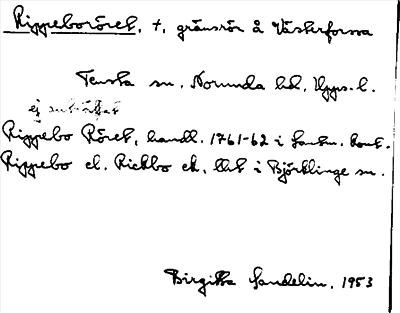 Rippeboröret, †, gränsrör å Västerforssa
Tensta sn, Norunda hd, Upps. l.
ej
Rippebo Röret, handl. 1761-62 i Lantm. kont.
Rippebo el. Rickbo ek, litt i Björklinge sn.
Birgitta Sandelin, 1953